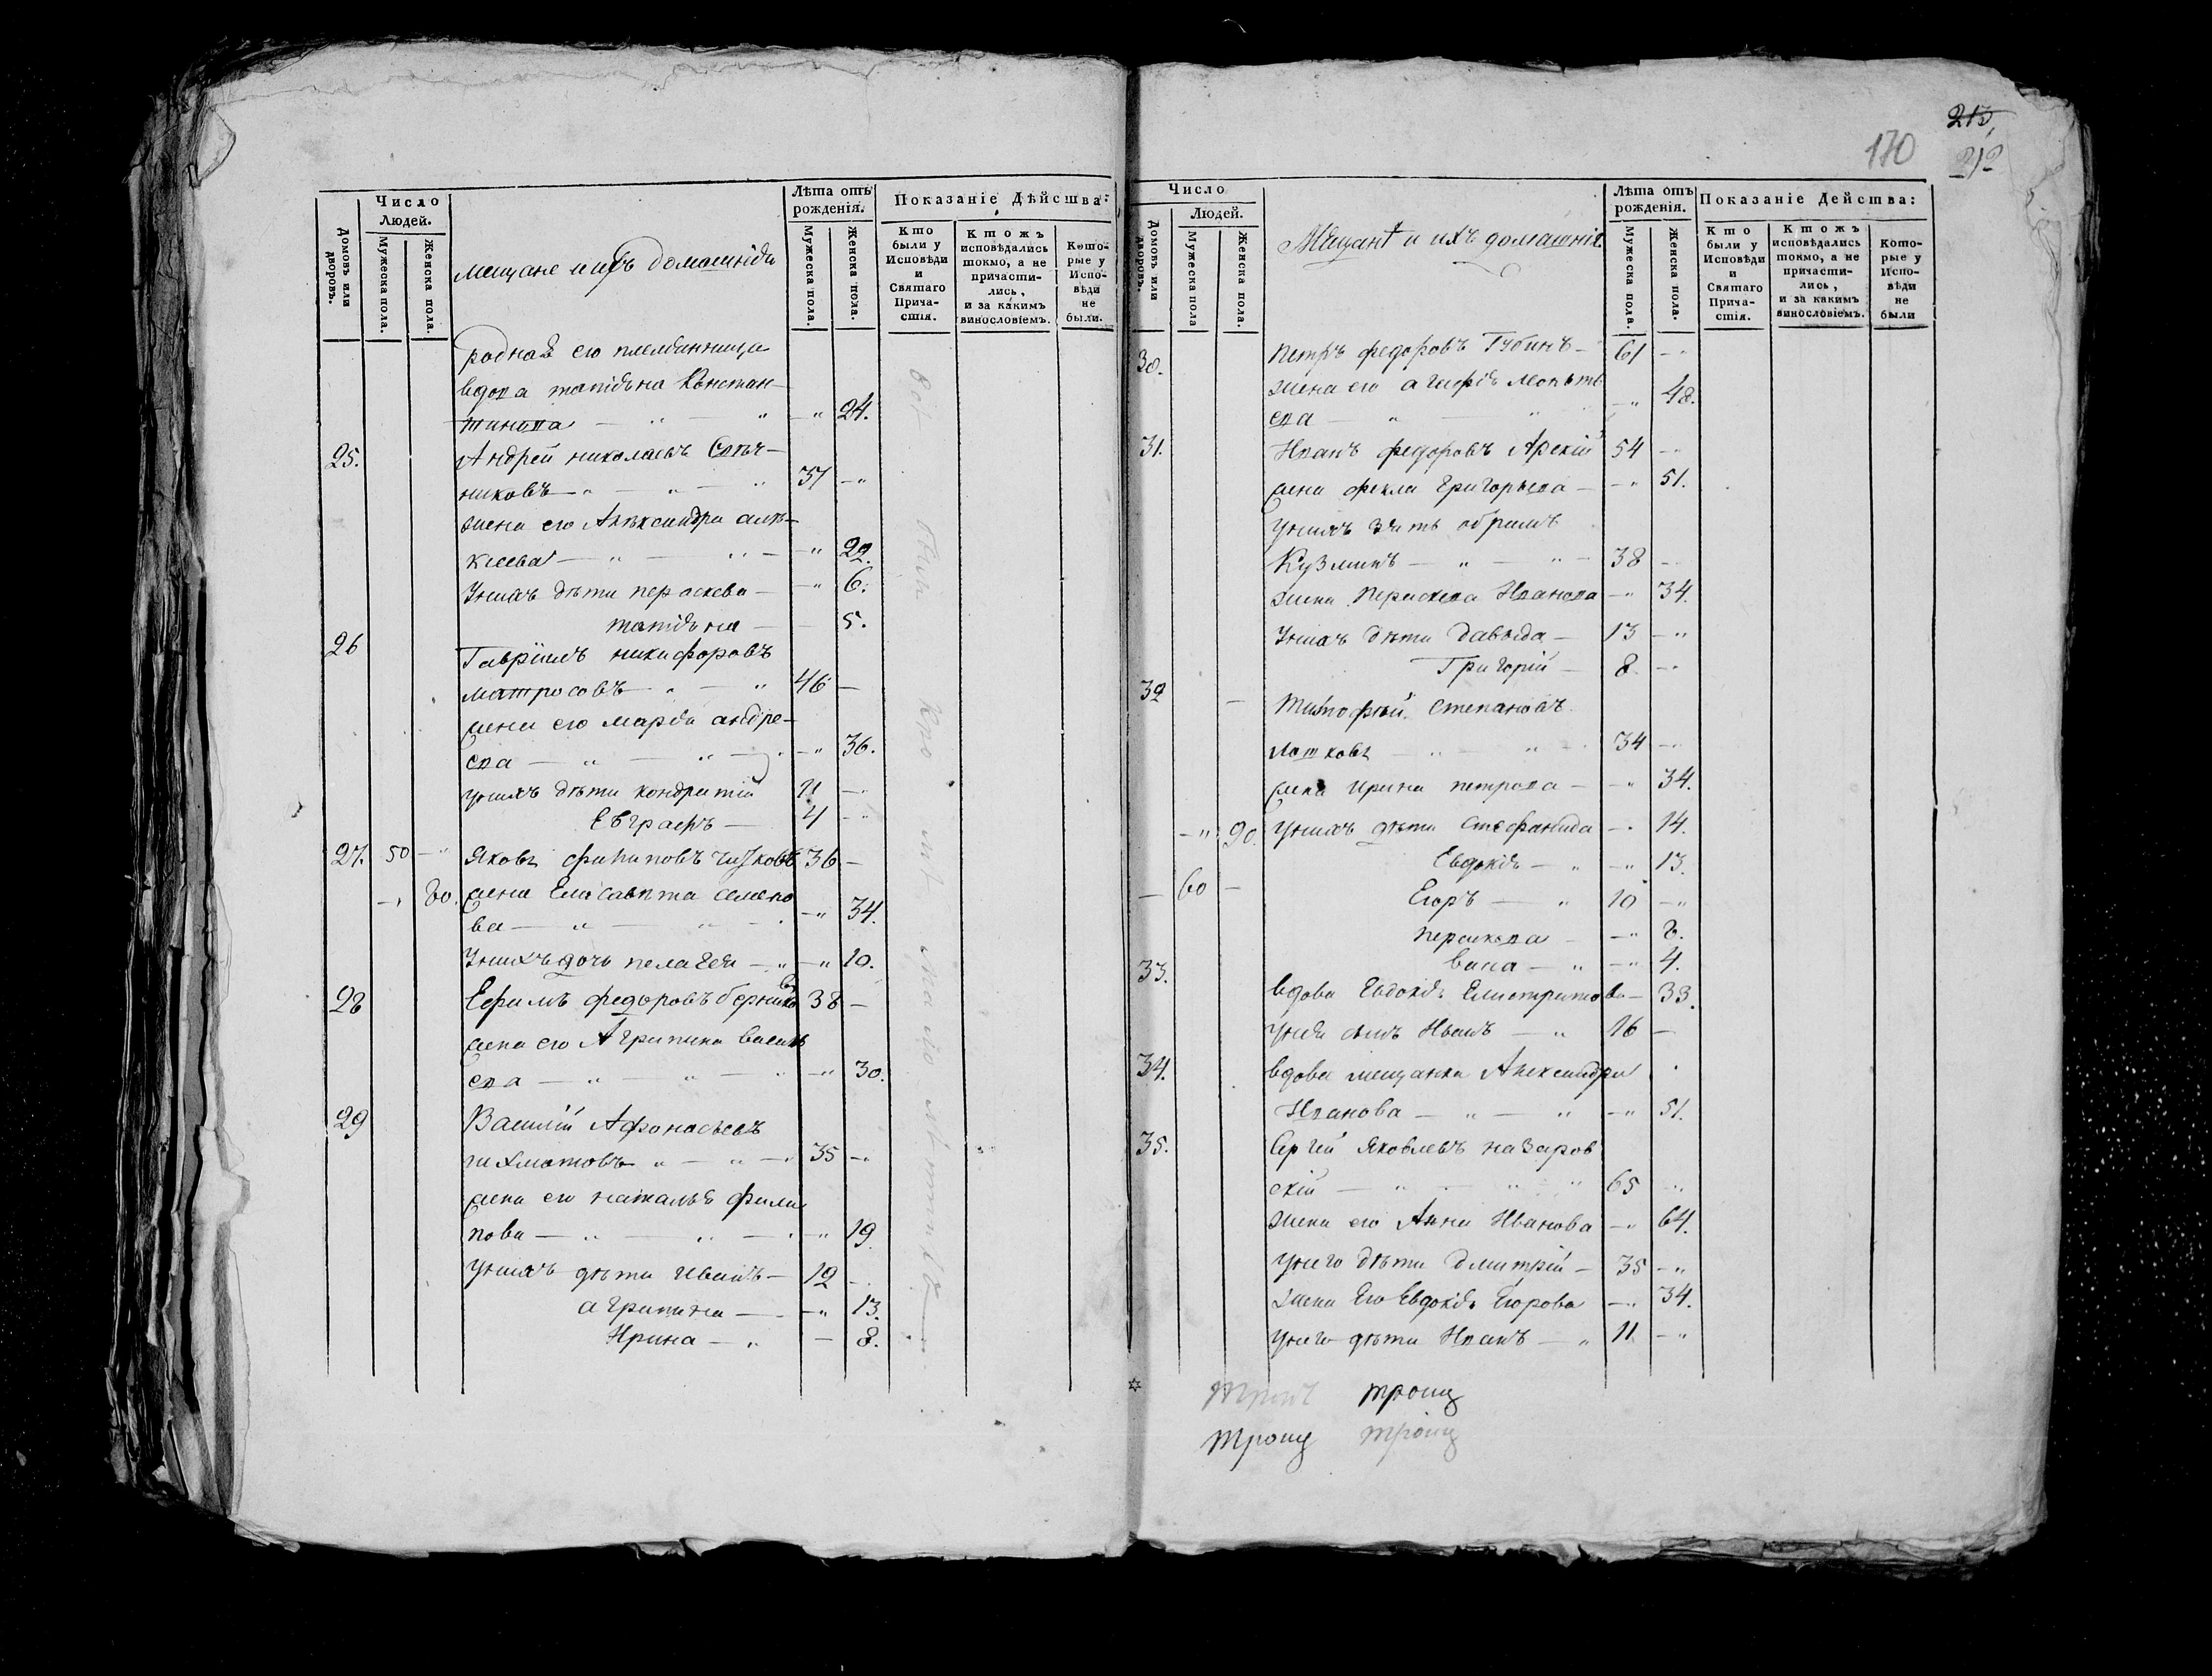 213,
212
170
Число
Людей.
Домовъ или дворовъ.
Мужеска пола.
Женска пола.
мещане и ихъ домашнія
Лѣта отъ рожденія.
Мужеска пола.
Женска пола.
Показаніе Дѣйства:
Кто были у Исповѣди и Святаго Причастія.
Ктожъ исповѣдались токмо, а не причастились, и за какимъ винословіемъ.
Которые у Исповѣди не были.
родная его племянница
вдова татіяна Констан-
тинова — 24.
25. Андрей николаевъ
никовъ — 37 —
жена его Александра алек-
сиева — 29.
у нихъ дѣти пераскева — 6.
татіяна — 5.
26 Гавріилъ никифоровъ
матросовъ — 46 —
жена его марія андре-
ева — 36.
у нихъ дѣти кондратій 11 —
Евграфъ — 4 —
27. 50 — Яковъ филиповъ чижовъ 36 —
80. жена Елисавета семено
ва — 34.
У нихъ дочь пелагея — 10.
28 Ефимъ федоровъ 38 —
жена его Агрипина василь
ева — 30.
29 Василій Афонасьевъ
шахматовъ — 35 —
жена его наталья фили
пова — 19.
у нихъ дѣти иванъ — 12 —
агрипина — 13.
Ирина — 8.
Число
Людей.
Домовъ или дворовъ.
Мужеска пола
Женска пола.
Мещанѣ и ихъ домашнія.
Лѣта отъ рожденія.
Мужеска пола.
Женска пола.
Показаніе Действа:
Кто были у Исповѣди и Святаго Причастія.
Ктожъ исповѣдались токмо, а не причастились, и за какимъ винословіемъ.
Которые у Исповѣди не были
30. Петръ федоровъ Губинъ — 61 —
жена его агафія леонть
ева — 48.
31. Иванъ федоровъ Арскій 54 —
жена фекла Григорьева — 51.
у нихъ зять
Кузминъ — 38 —
жена Пераскева Иванова — 34.
У нихъ дѣти давыда — 13 —
Григорій — 8 —
32 — Тимофѣй степановъ
34 —
жена ирина петрова — 34.
90. у нихъ дѣти стефанида — 14.
Евдокія — 13.
— 60 — Егоръ — 10 —
Пераскева — 8.
— 4.
33. вдова Евдокія Елистратова — 33.
у нея сынъ Иванъ — 16 —
34. вдова мещанка Александра
Иванова — 51.
35. Сергей Яковлевъ назаров
скій — 65 —
жена его Анна Иванова — 64.
у него дѣти дмитрій — 35 —
жена Его Евдокія Егорова — 34.
у него дѣти Иванъ — 11 —
троиц
троиц троиц